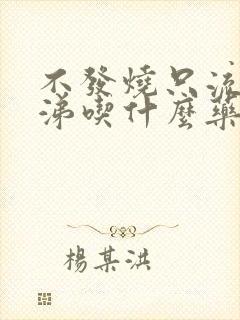 不發燒只流
涕喫什麼藥
楊某洪